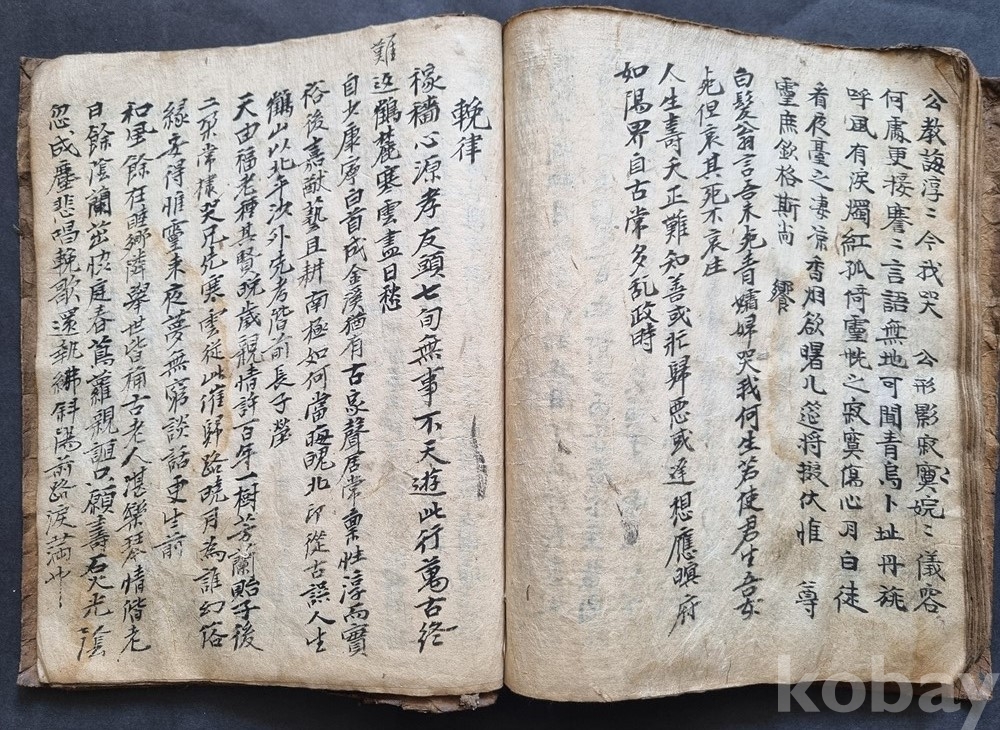 公教誨淳〻今我哭 公形影寂寞婉〻儀容
何處更接謇〻言語無地可聞青烏卜址丹旐
呼風有淚燭紅孤倚靈恍之寂寞傷心月白徒
看夜臺之凄凉香烟欲曙几筵將掇伏惟 尊
靈庶歆格斯尚 饗
白髮翁言吾未死青孀婦哭我何生若使君生吾
死但哀其死不哀生
人生壽夭正難知善或壯歸惡或遲想應暝府
如陽界自古常多乱政時
輓律
稼穡心源孝友頭七旬無事不天遊此行萬古終
難
返鶴麓寒雲盡日愁
自少康寧白首成金溪猶有古家聲居常禀性淳而實
裕後嘉猷藝且耕南極如何當晦晼北印從古誤人生
鶴山以北平沙外先考階前長子塋
天由福老種其賢晼歲親情許百年一樹芳蘭貽子後
二翠常棣哭兄先寒雲從此催歸路曉月為誰幻俗
緣安得惟靈来夜夢無窮談話更生前
和里餘在睡鄉隣舉世皆稱古老人湛樂琴情偕老
日餘蔭蘭茁快庭春蔦蘿親誼口願壽石火光陰
忽成塵悲唱輓歌還執紼斜陽前路淚滿巾
kobay